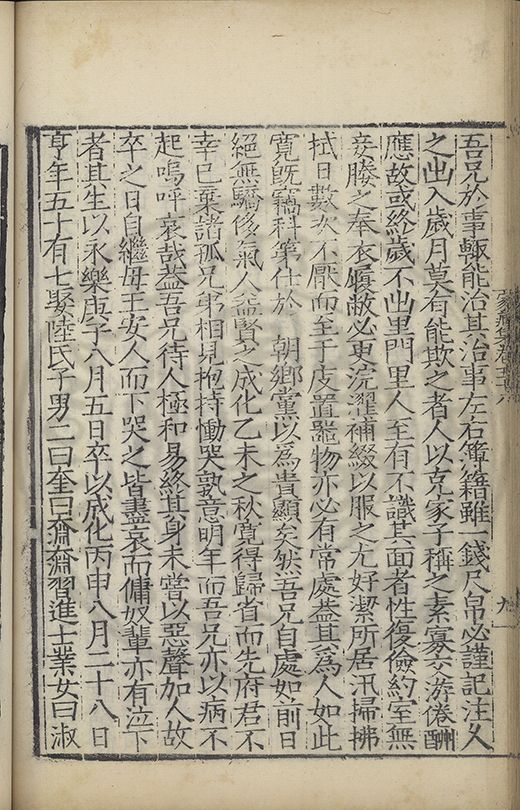 吾兄於事輙能治其治事左右簿籍雖一錢尺帛必謹記注久
之出入歲月莫有能欺之者人以克家子稱之素寡交游倦酬
應故或終歲不出里門里人至有不識其面者性復儉約室無
妾媵之奉衣履敝必更浣濯補綴以服之尤好潔所居汛掃拂
拭日數次不厭而至于庋置噐物亦必有常處葢其爲人如此
寛旣竊科第仕於　朝鄉黨以爲貴顯矣然吾兄自處如前日
絕無驕侈氣人益賢之成化乙未之秋寛得歸省而先府君不
幸已棄諸孤兄弟相見抱持慟哭孰意明年而吾兄亦以病不
起嗚呼哀哉葢吾兄待人極和易終其身未嘗以惡聲加人故
卒之日自繼母王安人而下哭之皆盡哀而傭奴輩亦有泣下
者其生以永樂庚子八月五日卒以成化丙申八月二十八日
享年五十有七娶陸氏子男二曰奎曰齋齋習進士業女曰淑